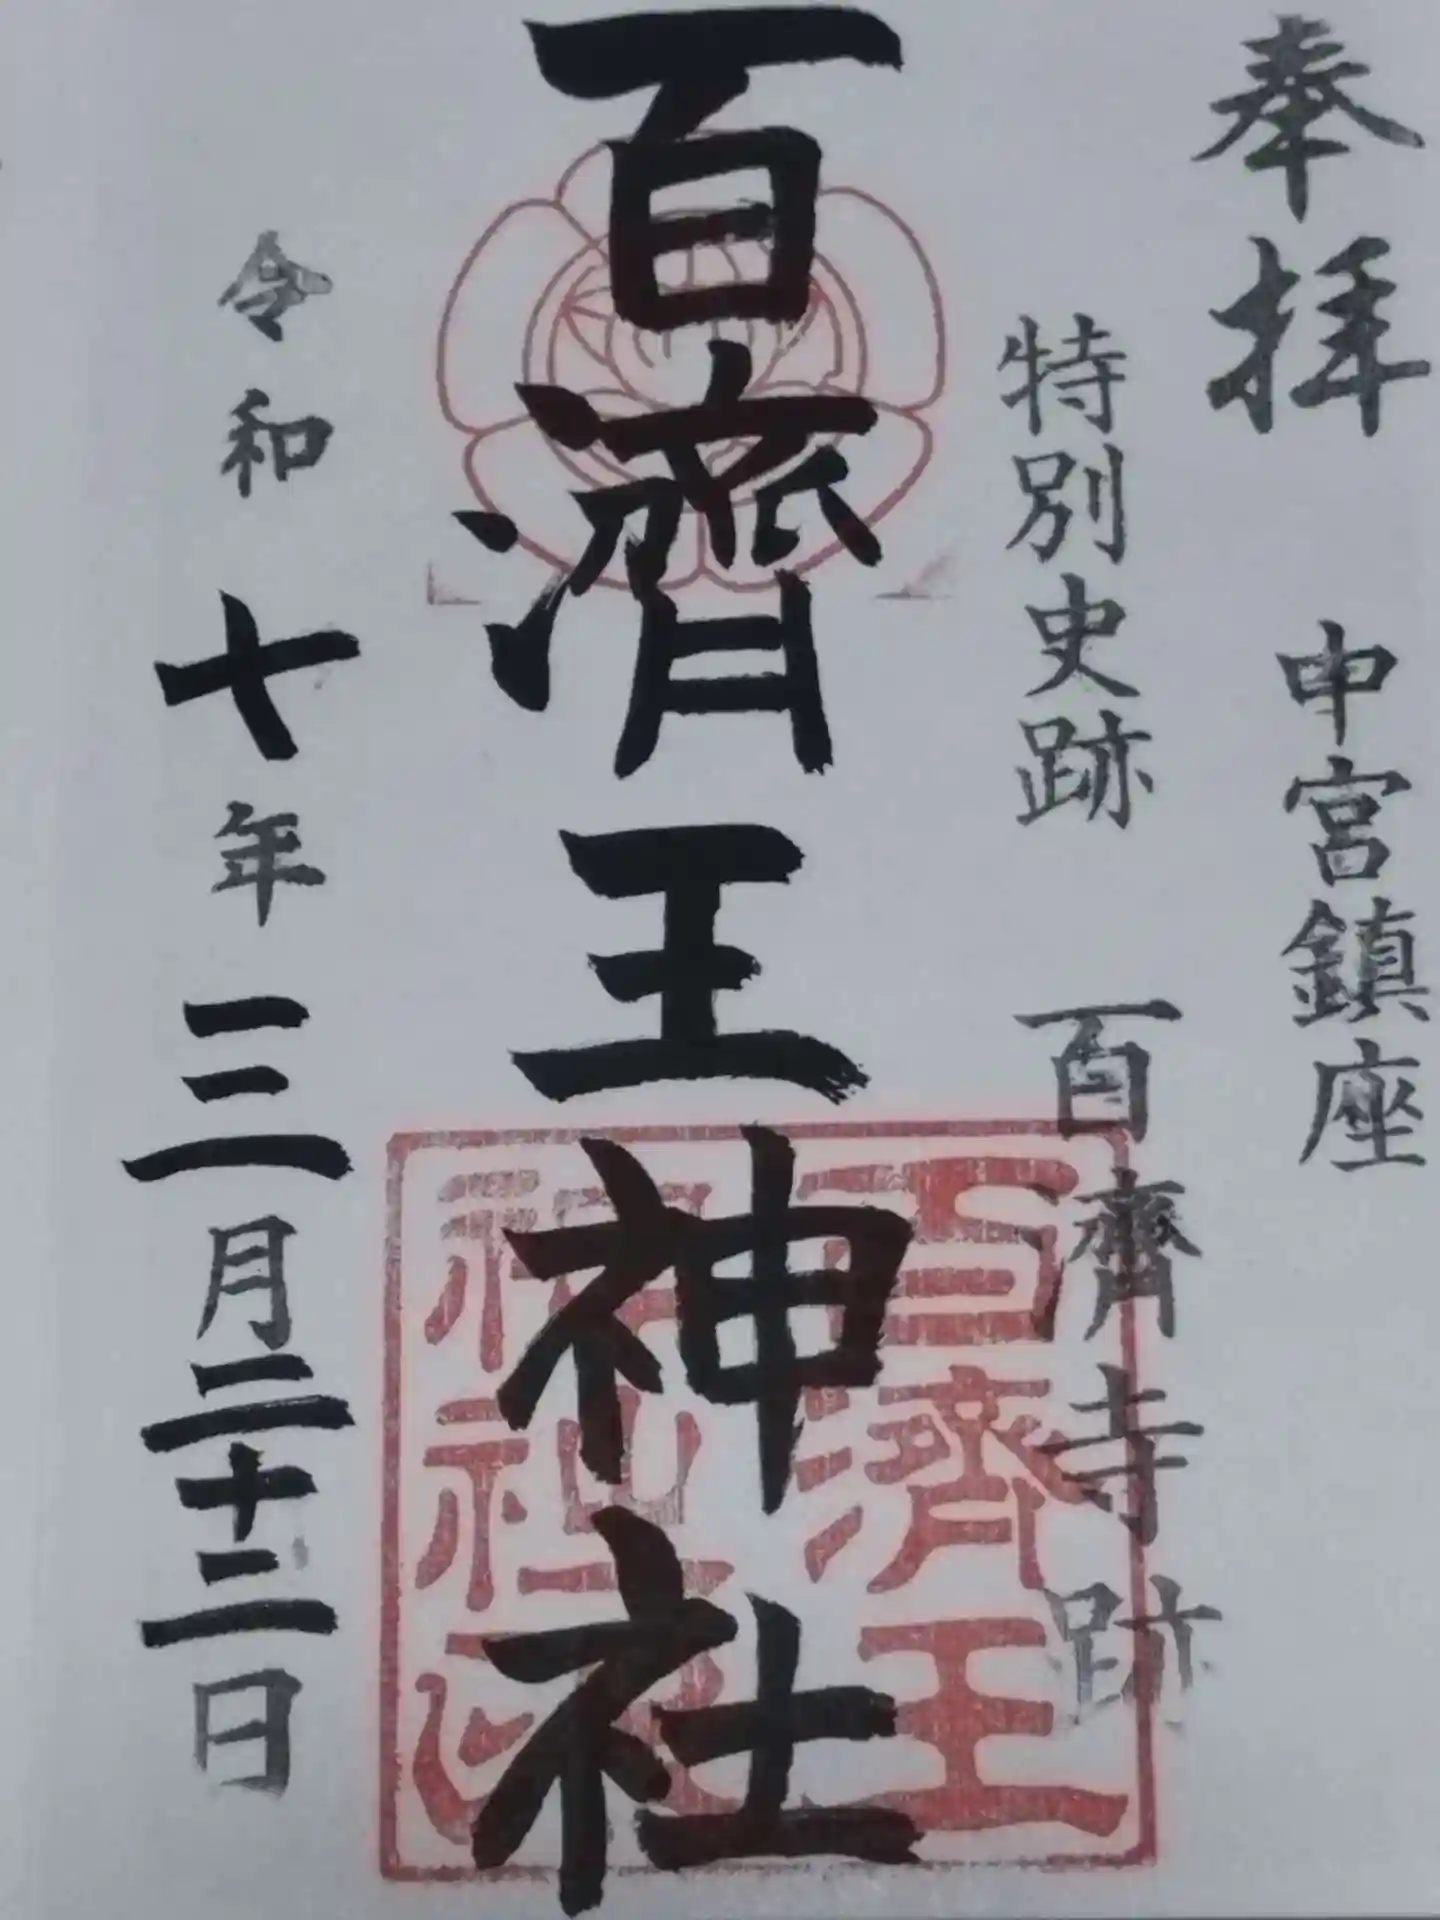 奉拝
中宮鎮座
特別史跡 百齊寺跡
百濟王神社
百濟王
神社印
令和七年三月二十二日